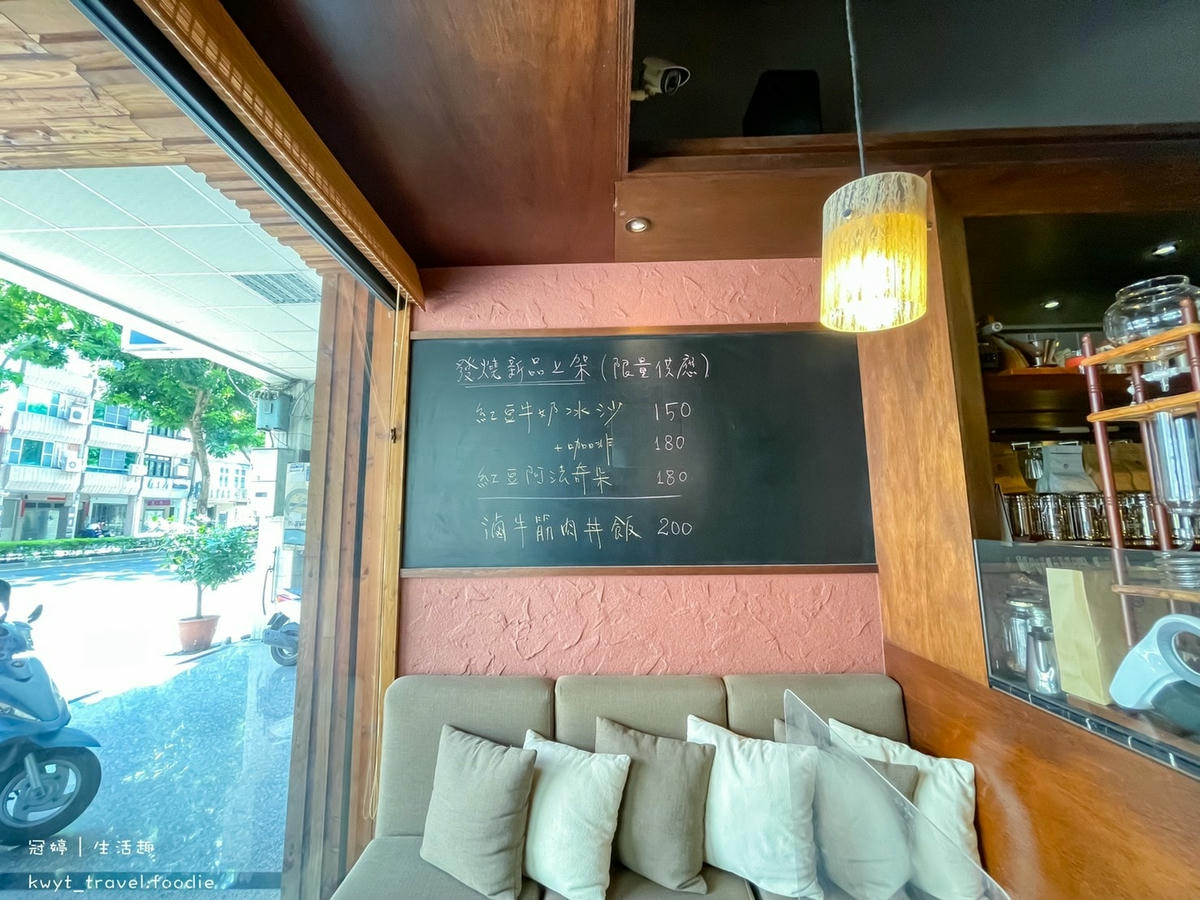 發燒新品上架(限量供應)
紅豆牛奶冰沙 150
+咖啡 180
紅豆阿法奇朵 180
滷牛筋肉丼飯 200
冠婷｜生活趣
kwyt_travel.foodie